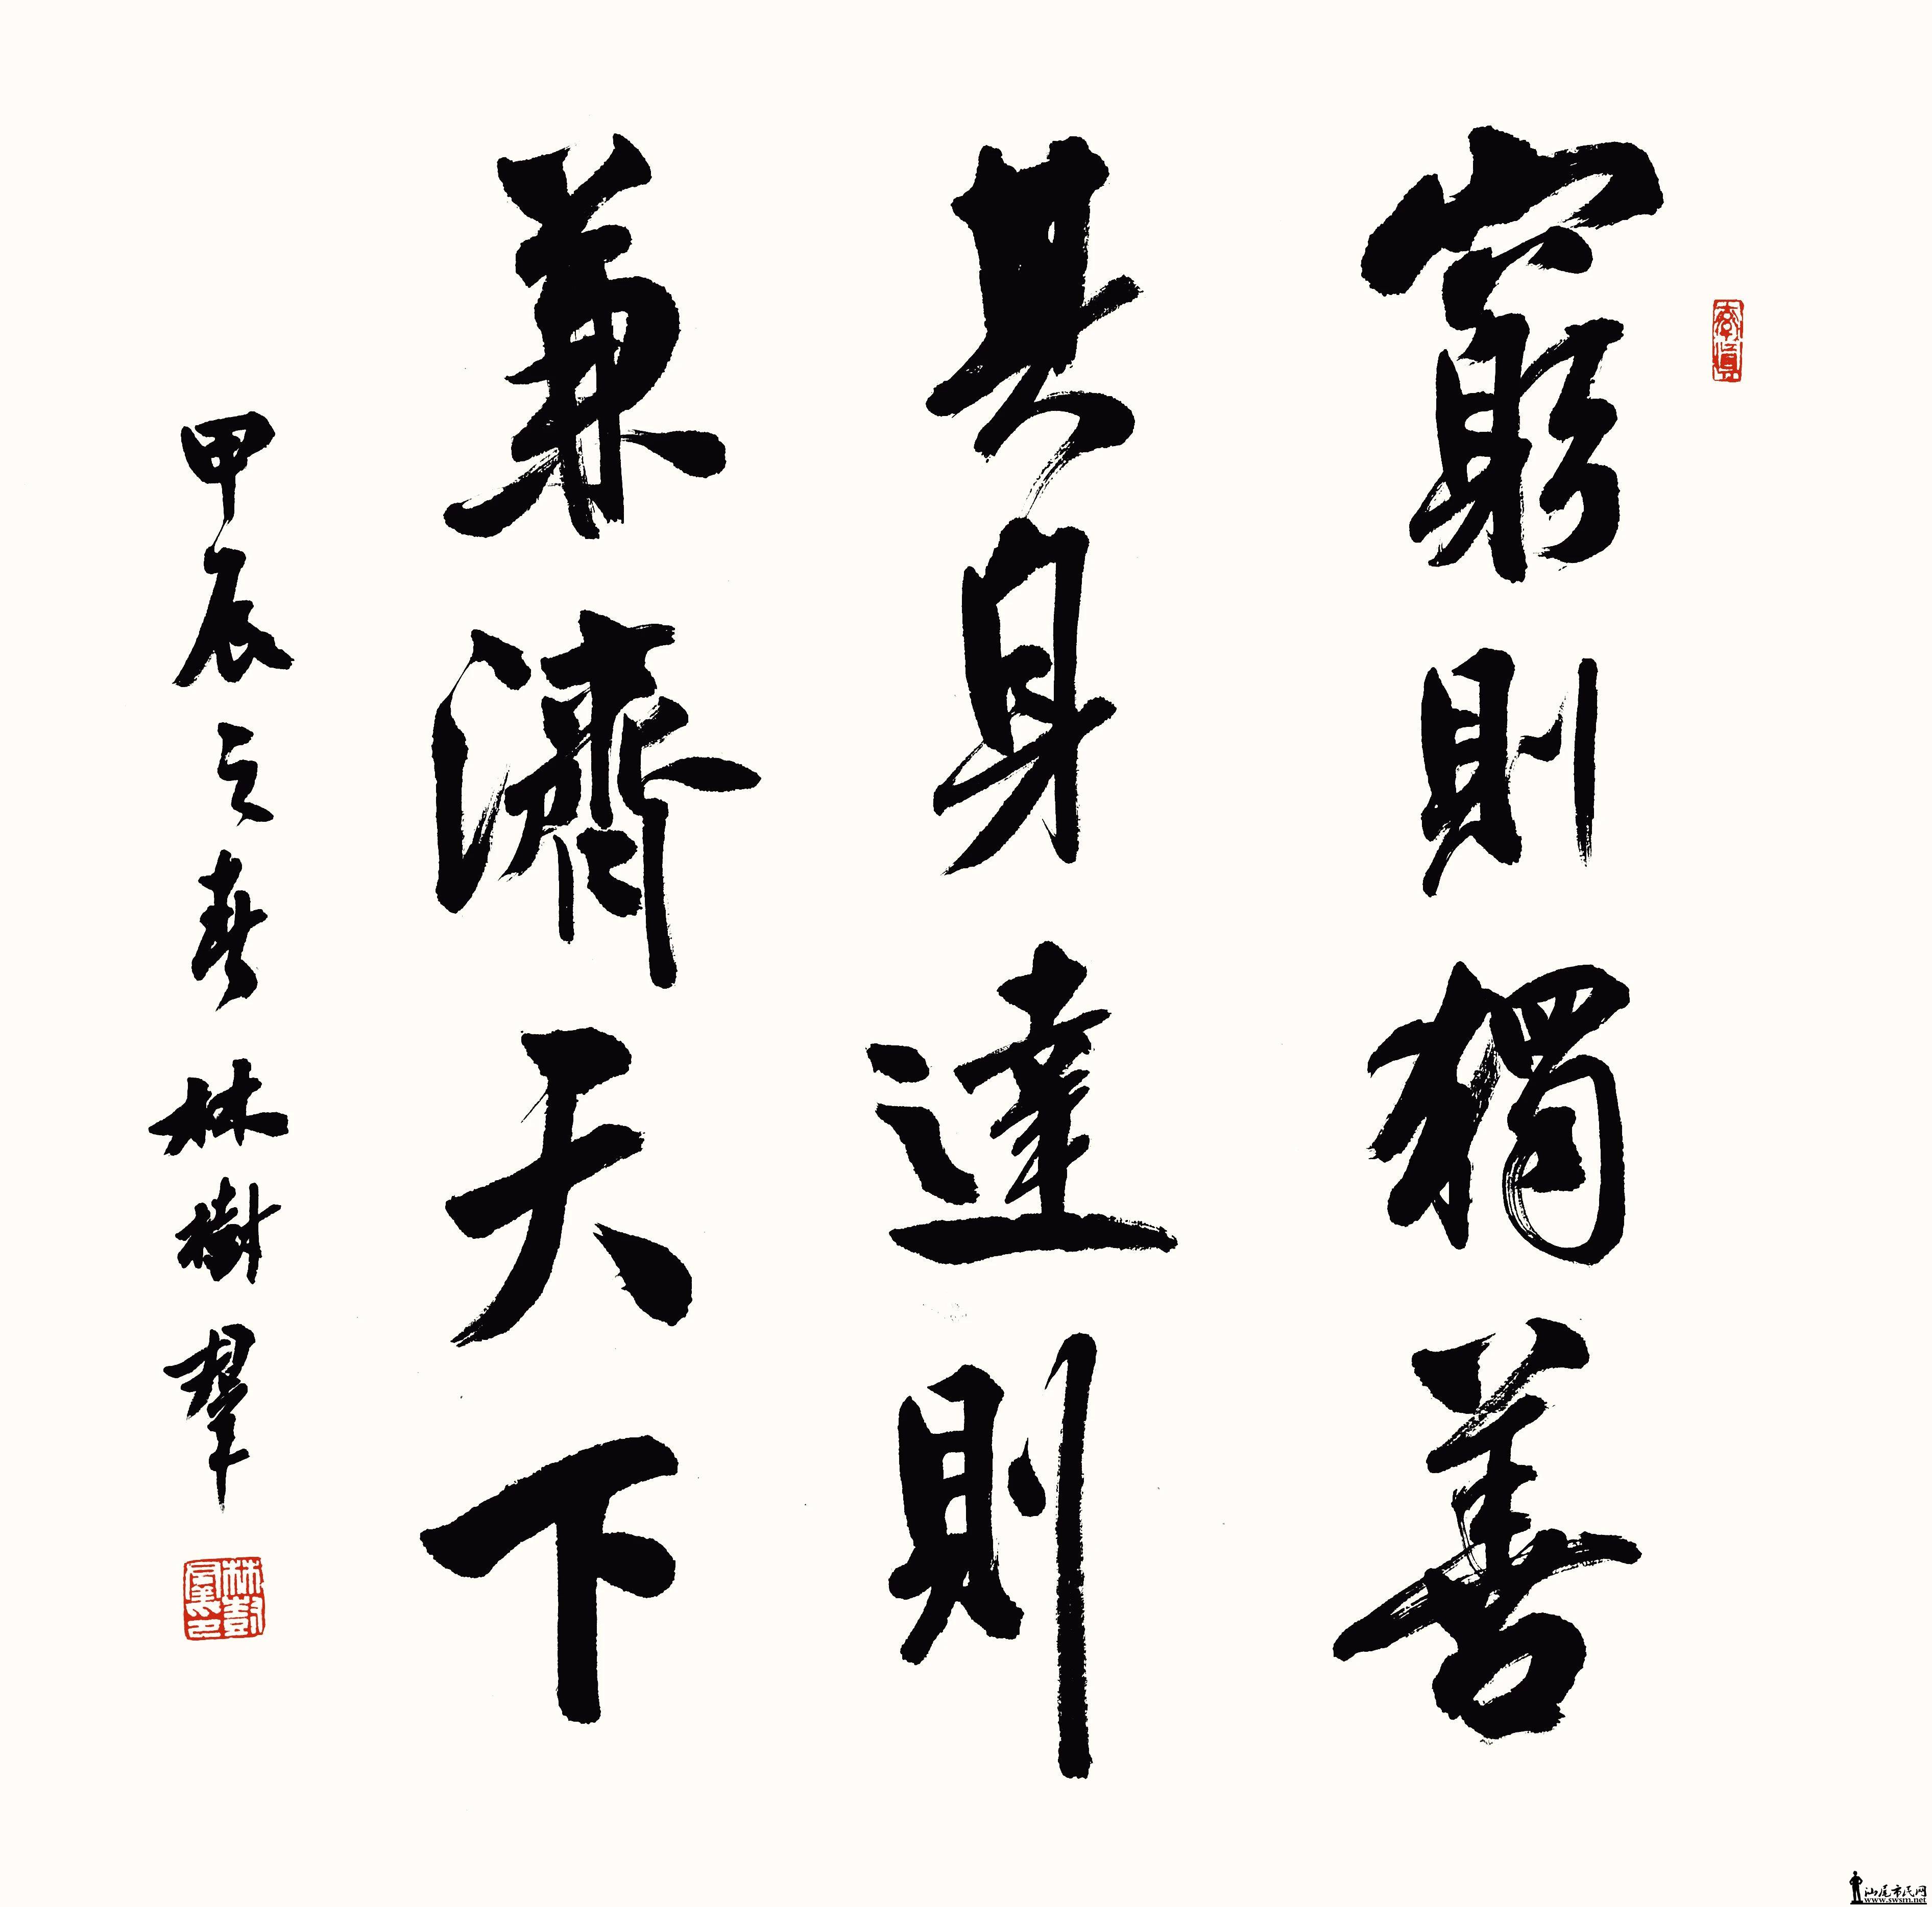 窮則獨善
其身達則
兼濟天下
甲辰之春林樹群
林樹
汕尾市民网
www.swsm.net